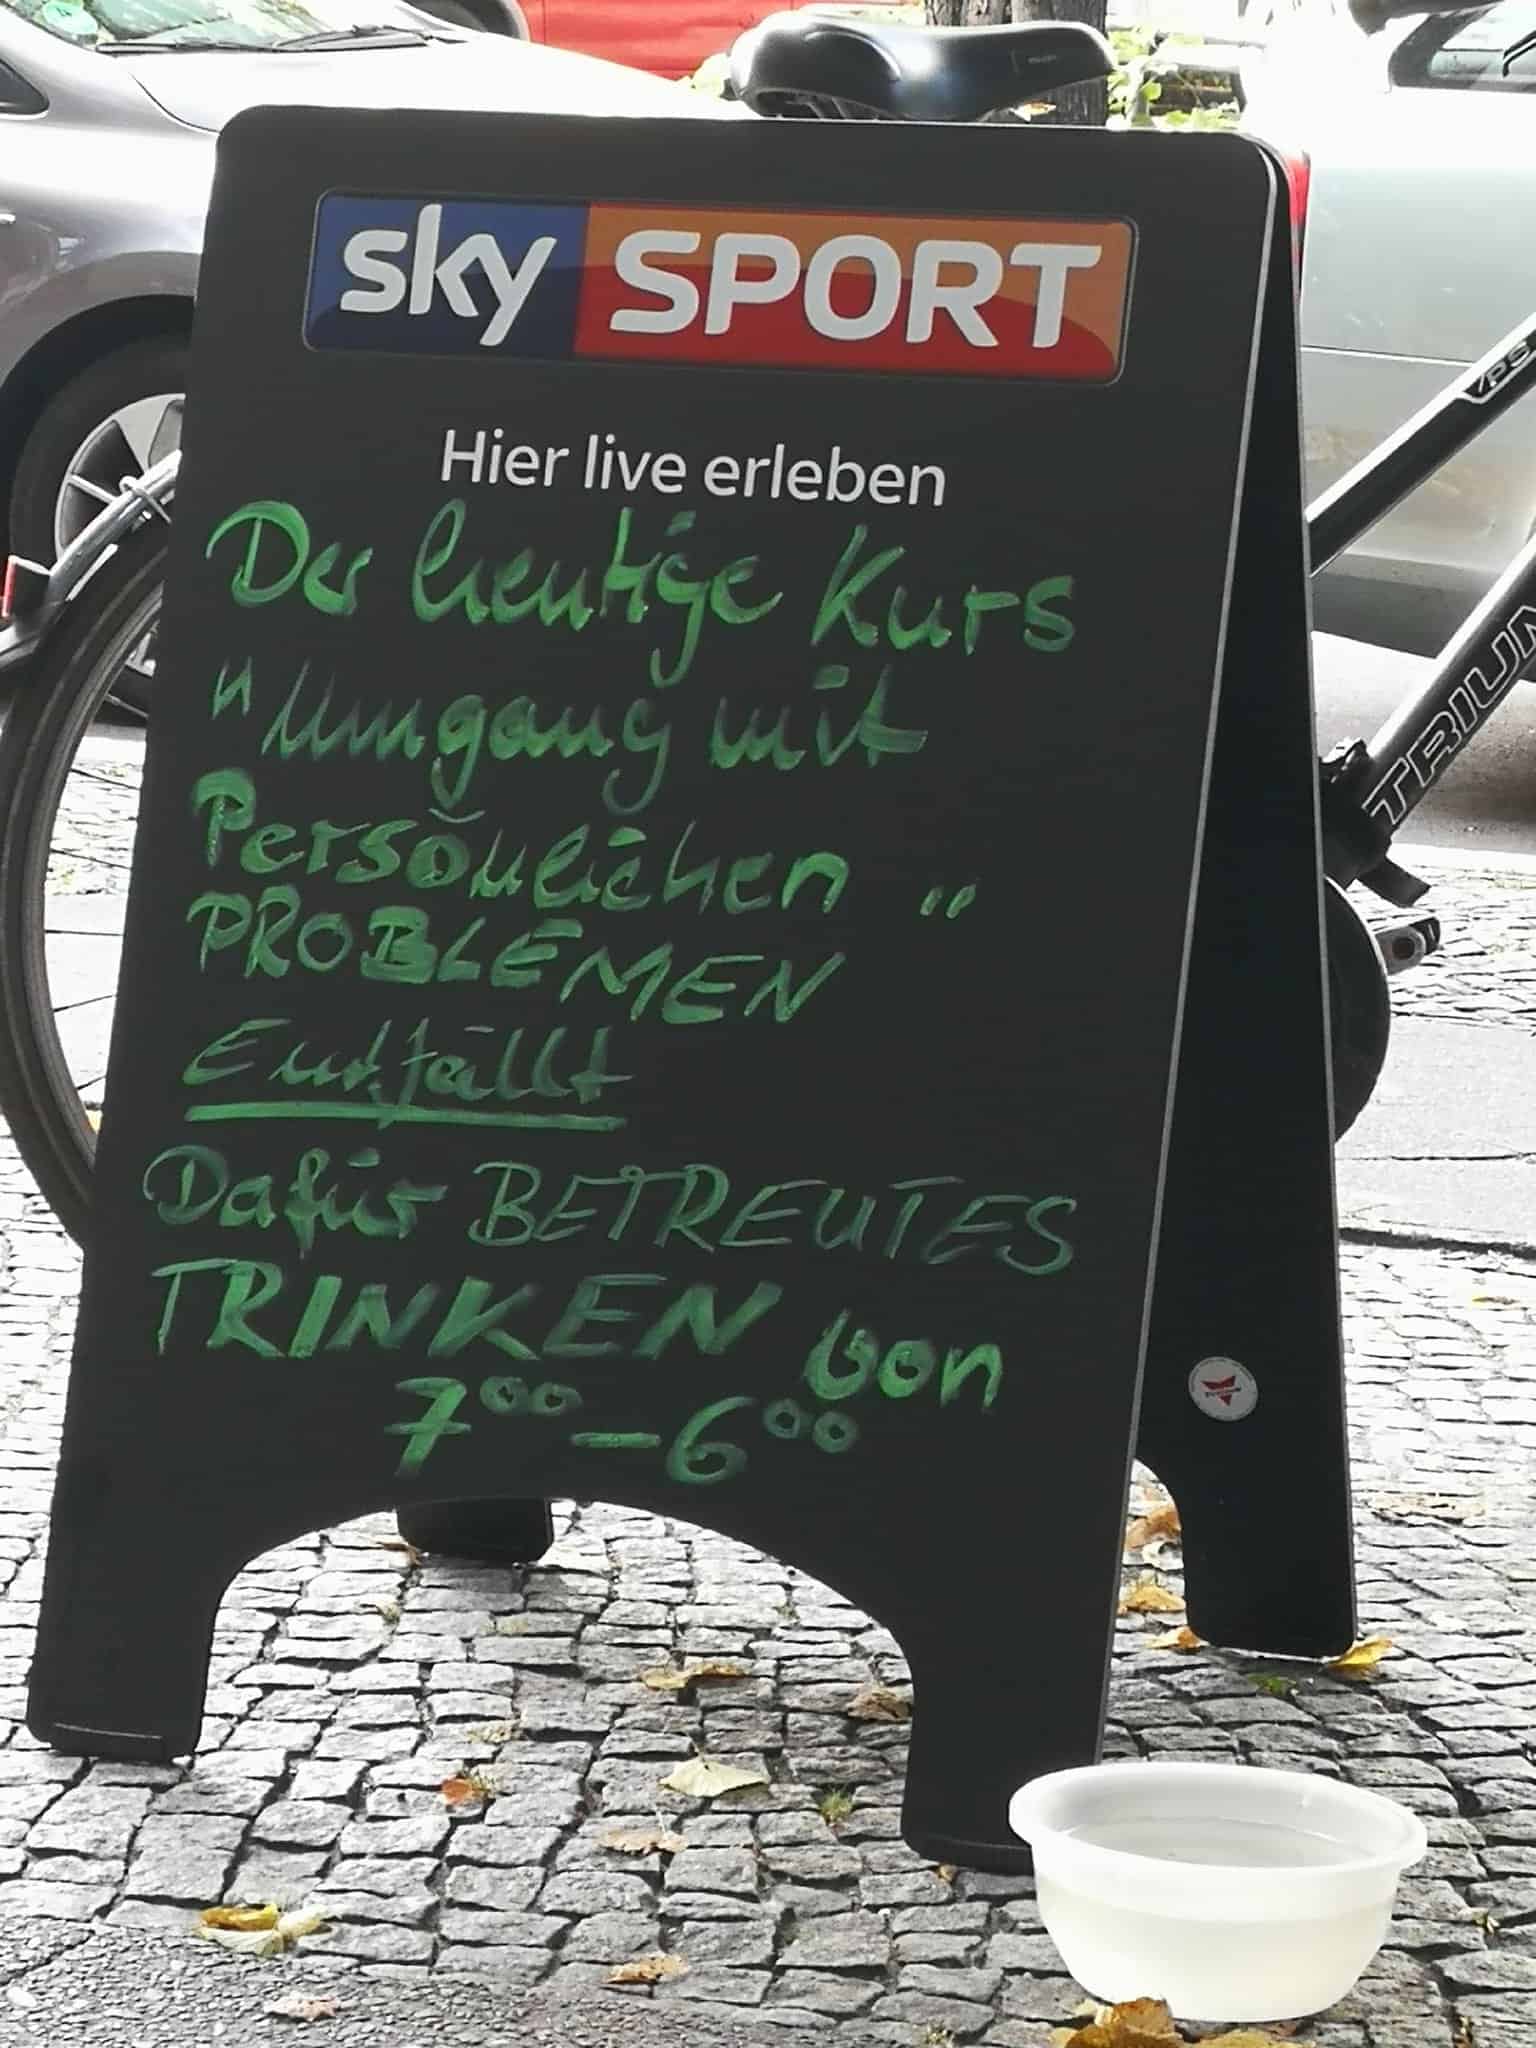 sky SPORT
Hier live erleben
Der heutige Kurs
"Umgang mit
Persönlichen "
PROBLEMEN
Entfällt
Dafür BETREUTES
TRINKEN von
7⁰⁰ – 6⁰⁰